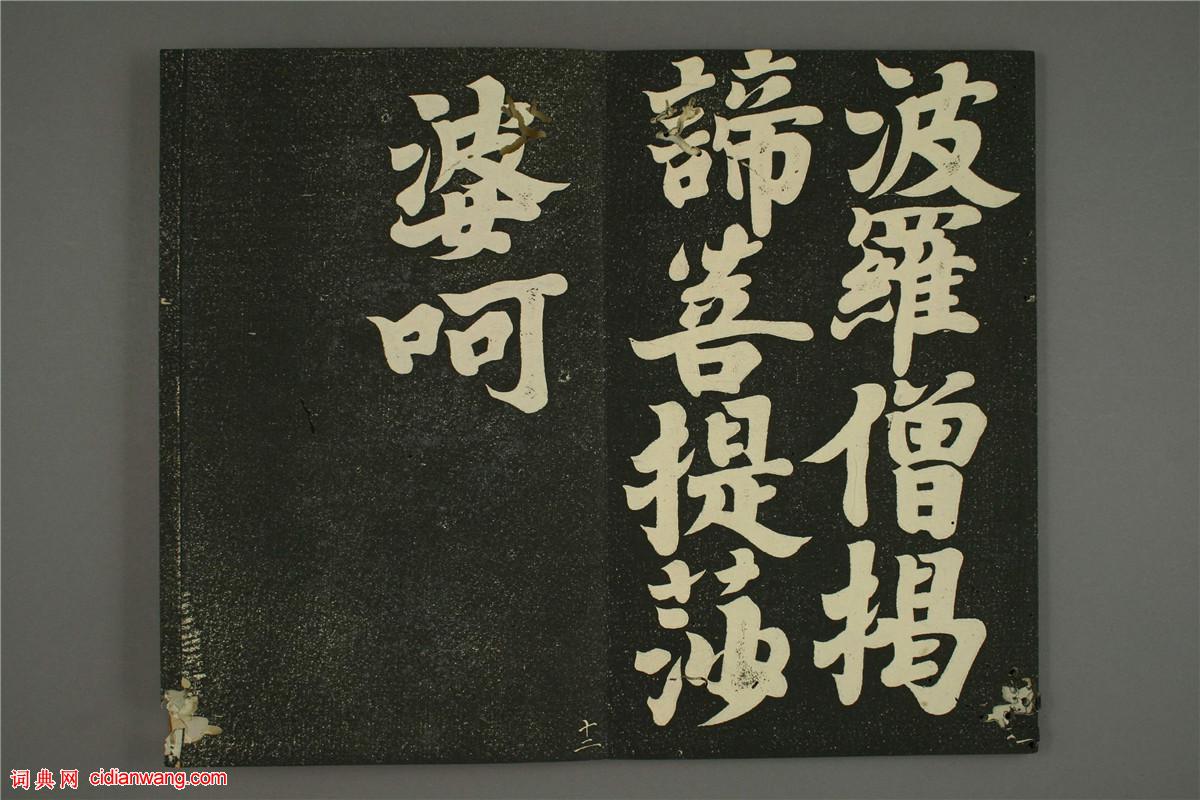 波羅僧揭
諦菩提莎
婆呵
十二
词典网 cidianwang.com